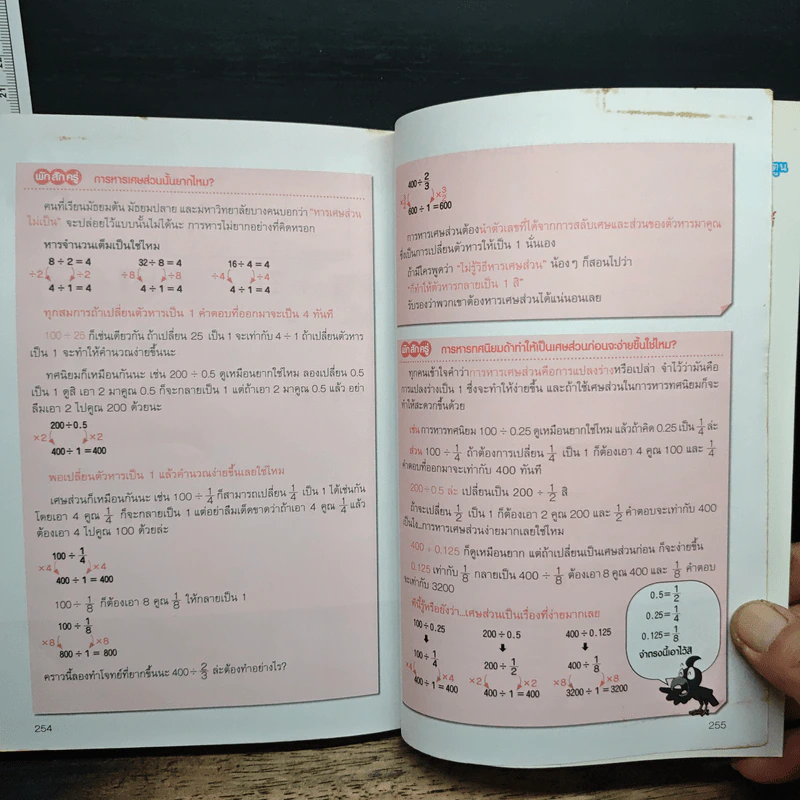 21
22
พักสักครู่ การหารเศษส่วนนั้นยากไหม?
คนที่เรียนมัธยมต้น มัธยมปลาย และมหาวิทยาลัยบางคนบอกว่า "หารเศษส่วน
ไม่เป็น" จะปล่อยไว้แบบนั้นไม่ได้นะ การหารไม่ยากอย่างที่คิดหรอก
หารจำนวนเต็มเป็นใช่ไหม
8 ÷ 2 = 4 32 ÷ 8 = 4 16 ÷ 4 = 4
÷2 ÷2 ÷8 ÷8 ÷4 ÷4
4 ÷ 1 = 4 4 ÷ 1 = 4 4 ÷ 1 = 4
ทุกสมการถ้าเปลี่ยนตัวหารเป็น 1 คำตอบที่ออกมาจะเป็น 4 ทันที
100 ÷ 25 ก็เช่นเดียวกัน ถ้าเปลี่ยน 25 เป็น 1 จะเท่ากับ 4 ÷ 1 ถ้าเปลี่ยนตัวหาร
เป็น 1 จะทำให้คำนวณง่ายขึ้นนะ
ทศนิยมก็เหมือนกันนะ เช่น 200 ÷ 0.5 ดูเหมือนยากใช่ไหม ลองเปลี่ยน 0.5
เป็น 1 ดูสิ เอา 2 มาคูณ 0.5 ก็จะกลายเป็น 1 แต่ถ้าเอา 2 มาคูณ 0.5 แล้ว อย่า
ลืมเอา 2 ไปคูณ 200 ด้วยนะ
200 ÷ 0.5
×2 ×2
400 ÷ 1 = 400
พอเปลี่ยนตัวหารเป็น 1 แล้วคำนวณง่ายขึ้นเลยใช่ไหม
เศษส่วนก็เหมือนกันนะ เช่น 100 ÷ 1/4 ก็สามารถเปลี่ยน 1/4 เป็น 1 ได้เช่นกัน
โดยเอา 4 คูณ 1/4 ก็จะกลายเป็น 1 แต่อย่าลืมเด็ดขาดว่าถ้าเอา 4 คูณ 1/4 แล้ว
ต้องเอา 4 ไปคูณ 100 ด้วยล่ะ
100 ÷ 1/4
×4 ×4
400 ÷ 1 = 400
100 ÷ 1/8 ก็ต้องเอา 8 คูณ 1/8 ให้กลายเป็น 1
100 ÷ 1/8
×8 ×8
800 ÷ 1 = 800
คราวนี้ลองทำโจทย์ที่ยากขึ้นนะ 400 ÷ 2/3 ล่ะต้องทำอย่างไร?
254
400 ÷ 2/3
×3/2 ×3/2
600 ÷ 1 = 600
การหารเศษส่วนต้องนำตัวเลขที่ได้จากการสลับเศษและส่วนของตัวหารมาคูณ
ซึ่งเป็นการเปลี่ยนตัวหารให้เป็น 1 นั่นเอง
ถ้ามีใครพูดว่า "ไม่รู้วิธีหารเศษส่วน" น้องๆ ก็สอนไปว่า
"ก็ทำให้ตัวหารกลายเป็น 1 สิ"
รับรองว่าพวกเขาต้องหารเศษส่วนได้แน่นอนเลย
พักสักครู่ การหารทศนิยมถ้าทำให้เป็นเศษส่วนก่อนจะง่ายขึ้นใช่ไหม?
ทุกคนเข้าใจคำว่าการหารเศษส่วนคือการแปลงร่างหรือเปล่า จำไว้ว่ามันคือ
การแปลงร่างเป็น 1 ซึ่งจะทำให้ง่ายขึ้น และถ้าใช้เศษส่วนในการหารทศนิยมก็จะ
ทำให้สะดวกขึ้นด้วย
เช่น การหารทศนิยม 100 ÷ 0.25 ดูเหมือนยากใช่ไหม แล้วถ้าคิด 0.25 เป็น 1/4 ล่ะ
ส่วน 100 ÷ 1/4 ถ้าต้องการเปลี่ยน 1/4 เป็น 1 ก็ต้องเอา 4 คูณ 100 และ 1/4
คำตอบที่ออกมาจะเท่ากับ 400 ทันที
200 ÷ 0.5 ล่ะ เปลี่ยนเป็น 200 ÷ 1/2 สิ
ถ้าจะเปลี่ยน 1/2 เป็น 1 ก็ต้องเอา 2 คูณ 200 และ 1/2 คำตอบจะเท่ากับ 400
เป็นไง...การหารเศษส่วนง่ายมากเลยใช่ไหม
400 ÷ 0.125 ก็ดูเหมือนยาก แต่ถ้าเปลี่ยนเป็นเศษส่วนก่อน ก็จะง่ายขึ้น
0.125 เท่ากับ 1/8 กลายเป็น 400 ÷ 1/8 ต้องเอา 8 คูณ 400 และ 1/8 คำตอบ
จะเท่ากับ 3200
ทีนี้รู้หรือยังว่า...เศษส่วนเป็นเรื่องที่ง่ายมากเลย
100 ÷ 0.25 200 ÷ 0.5 400 ÷ 0.125
100 ÷ 1/4 200 ÷ 1/2 400 ÷ 1/8
×4 ×4 ×2 ×2 ×8 ×8
400 ÷ 1 = 400 400 ÷ 1 = 400 3200 ÷ 1 = 3200
0.5 = 1/2
0.25 = 1/4
0.125 = 1/8
จำตรงนี้เอาไว้สิ
255